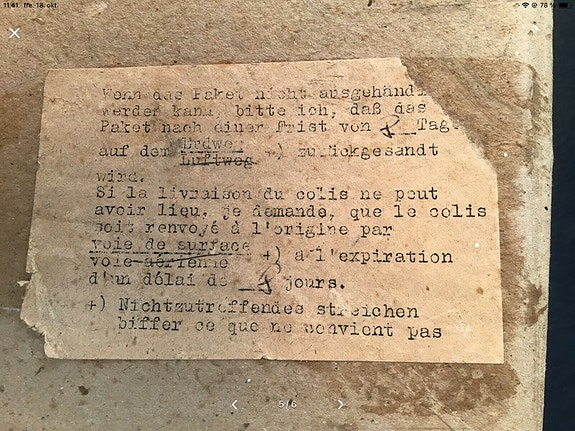 11:41 fre. 18. okt.
78 %
Wenn das Paket nicht ausgehändi
werden kann, bitte ich, daß das
Paket nach einer Frist von Tag
auf dem Ludweg
Luftweg +) zurückgesandt
wird.
Si la livraison du colis ne peut
avoir lieu, je demande, que le colis
soit renvoyé à l'origine par
voie de surface
voie aérienne +) à l'expiration
d'un délai de jours.
+) Nichtzutreffendes streichen
biffer ce que ne convient pas
5/6